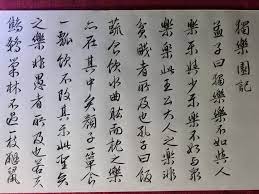 獨樂園記
孟子曰獨樂樂不如與人
樂樂與少樂樂不若與衆
樂樂此王公大人之樂非
貧賤者所及也孔子曰飯
蔬食飲水曲肱而枕之樂
亦在其中矣顏子簞食
一瓢飲不改其樂此聖賢
之樂非愚者所及也若夫
鷦鷯巢林不過一枝鼴鼠